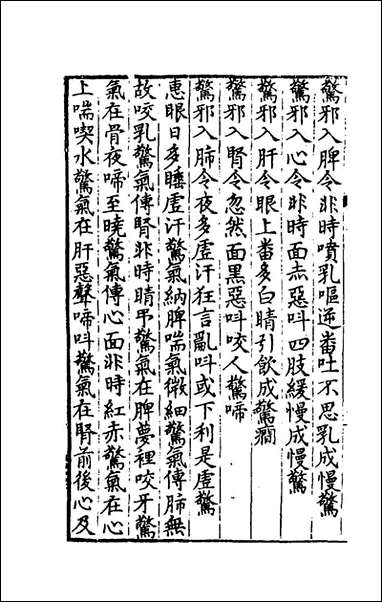 驚邪入脾令非時噴乳嘔逆畨吐不思乳成慢驚
驚邪入心令非時面赤惡叫四肢緩慢成慢驚
驚邪入肝令眼上畨多白睛引飲成驚癎
驚邪入腎令忽然面黑惡叫咬人驚啼
驚邪入肺令夜多虛汗狂言亂叫或下利是虛驚
惠眼日多睡虛汗驚氣納脾喘氣微細驚氣傳肺無
故咬乳驚氣傳腎非時睛弔驚氣在脾夢裡咬牙驚
氣在骨夜啼至曉驚氣傳心面非時紅赤驚氣在心
上喘喫水驚氣在肝惡聲啼叫驚氣在腎前後心及